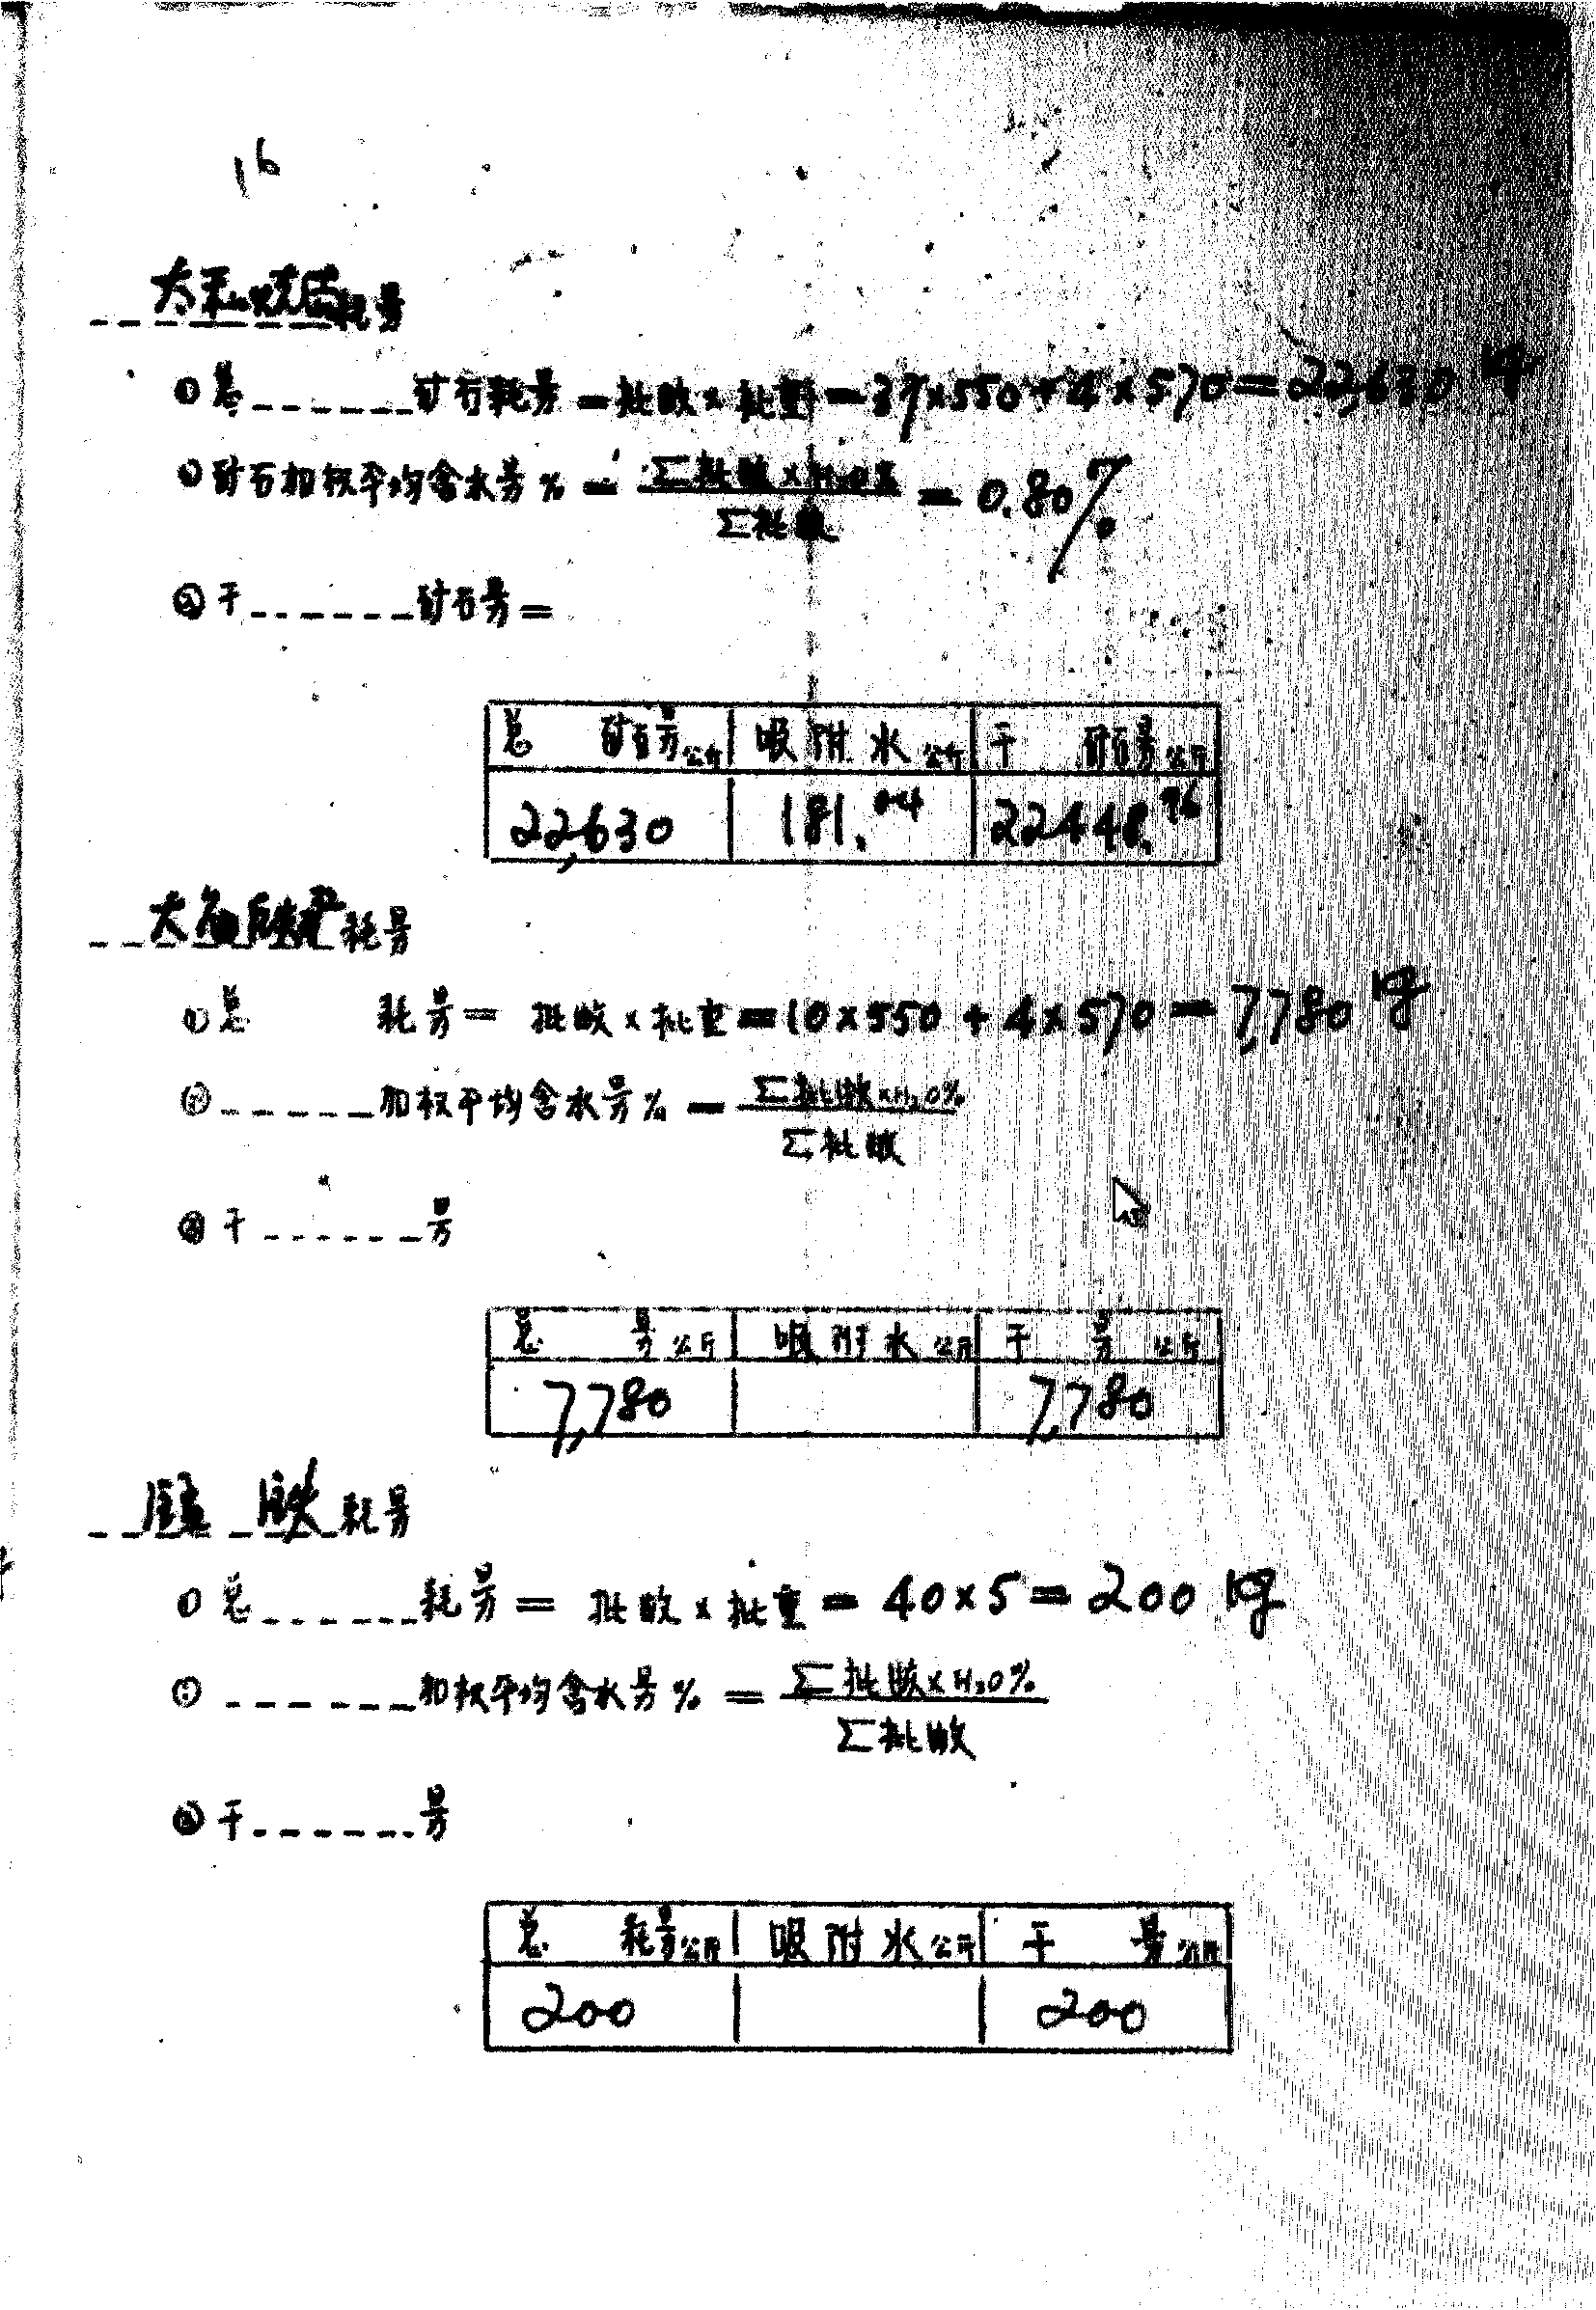 16
大 烧结耗量
① 总------矿石耗量=批数×批重=37×550+4×570=22630 kg
② 矿石加权平均含水量%= Σ批数×H₂O% / Σ批数 = 0.80%
③ 干------矿石量=
总 矿石量公斤 吸附水公斤 干 矿石量公斤
22,630 181.04 22448.96
大 铁矿耗量
① 总 耗量= 批数×批重=10×550+4×570=7,780 kg
② ------加权平均含水量%= Σ批数×H₂O% / Σ批数
③ 干------量
总 量公斤 吸附水公斤 干 量公斤
7,780 7,780
耗量
① 总------耗量= 批数×批重=40×5=200 kg
② ------加权平均含水量%= Σ批数×H₂O% / Σ批数
③ 干------量
总 耗量公斤 吸附水公斤 干 量公斤
200 200